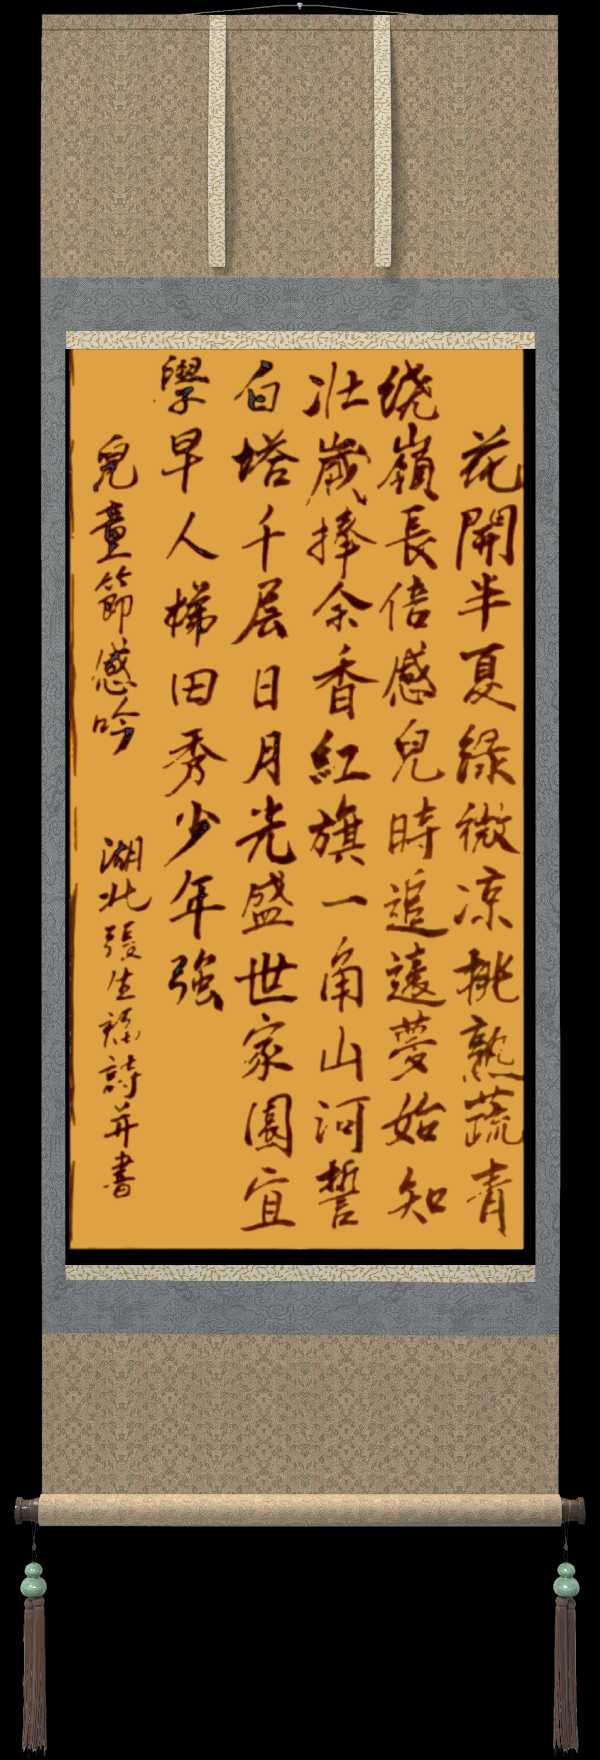 花開半夏綠微凉桃熟蔬青
绕嶺長倍感兒時追遠夢始知
壯歲捧余香紅旗一角山河誓
白塔千层日月光盛世家園宜
學早人梯田秀少年強
兒童節感吟 湖北張生詩并書